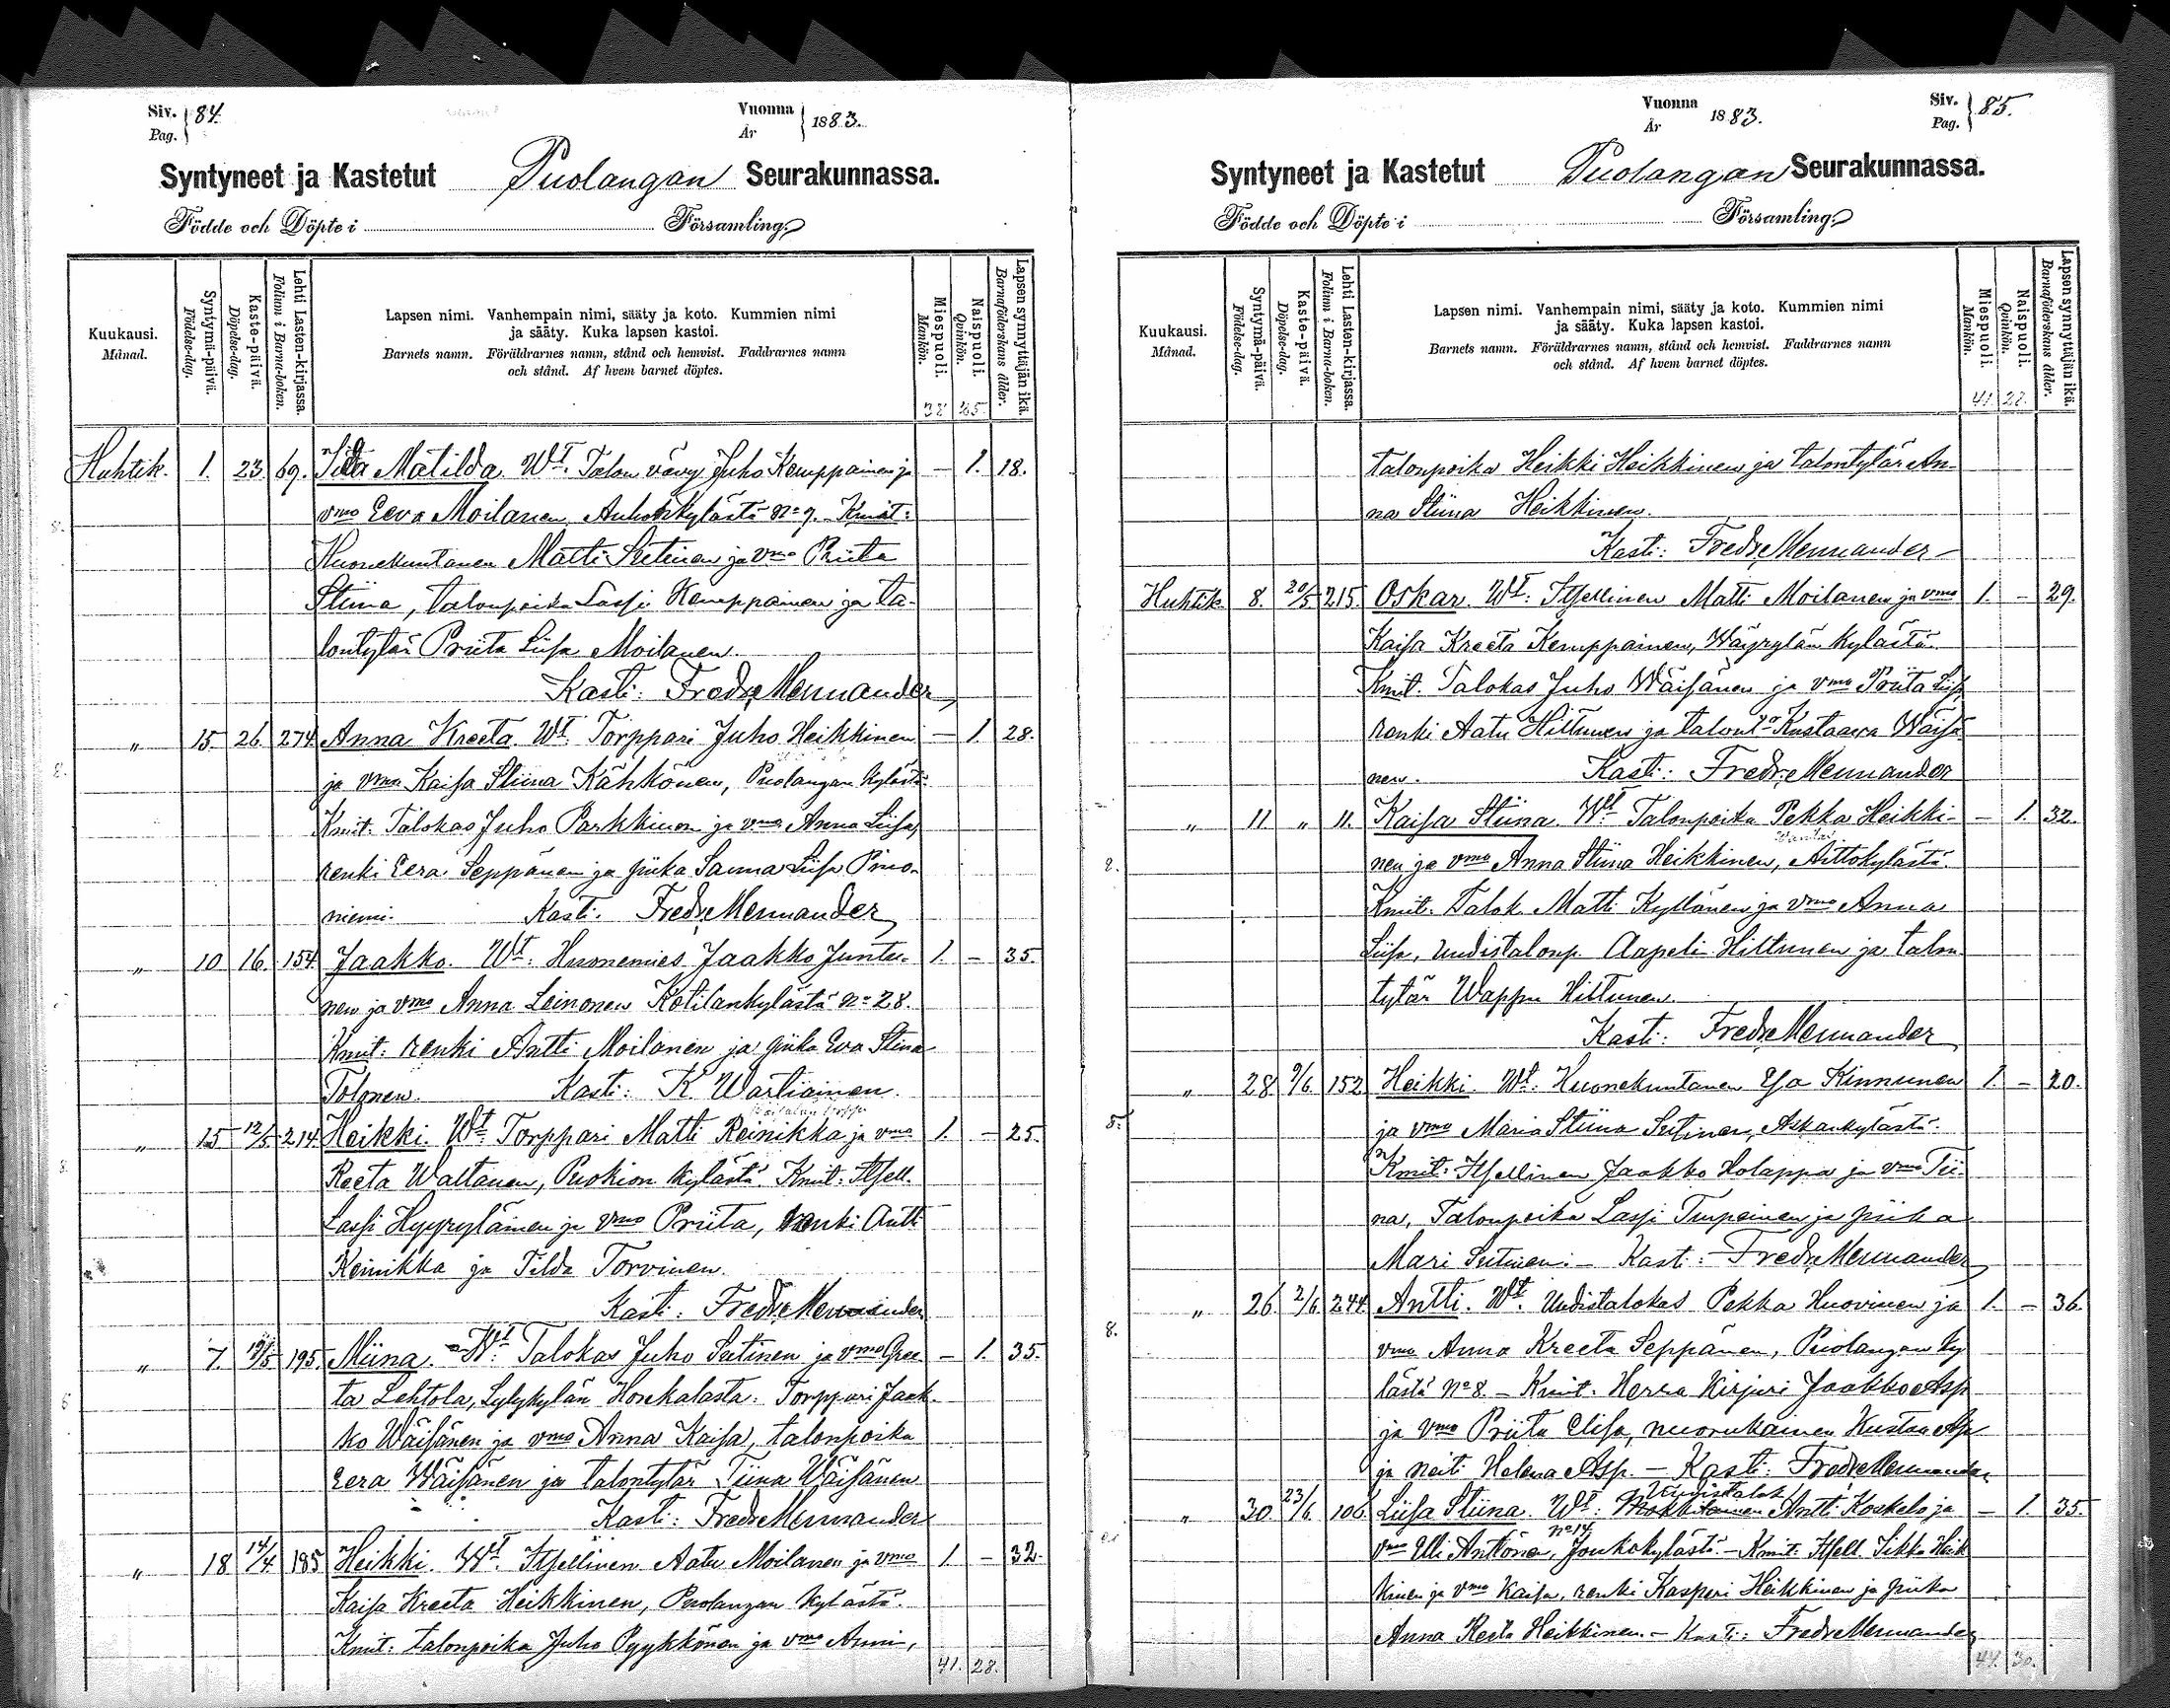 Siv. 84.
Pag.
Vuonna 1883.
År
Syntyneet ja Kastetut Puolangan Seurakunnassa.
Födde och Döpte i Församling.
Kuukausi.
Månad.
Syntymä-päivä.
Födelse-dag.
Kaste-päivä.
Döpelse-dag.
Lehti Lasten-kirjassa.
Folium i Barna-boken.
Lapsen nimi. Vanhempain nimi, sääty ja koto. Kummien nimi
ja sääty. Kuka lapsen kastoi.
Barnets namn. Föräldrarnes namn, stånd och hemvist. Faddrarnes namn
och stånd. Af hvem barnet döptes.
Miespuoli.
Mankön.
Naispuoli.
Qvinkön.
Lapsen synnyttäjän ikä.
Barnaföderskans ålder.
Huhtik. 1. 23. 69. Matilda. Wt. Talon vävy Juho Kemppainen ja — 1. 18.
vmo Eeva Moilanen, Auhonkylästä No 9. Kmit:
Huonekuntanen Matti Seitinen ja vmo Priita
Stiina, talonpoika Lassi Kemppainen ja ta-
lontytär Priita Liisa Moilanen.
Kasti: Fredr. Mennander
„ 15. 26. 274. Anna Kreeta. Wt. Torppari Juho Heikkinen — 1. 28.
ja vmo Kaisa Stiina Kähkönen, Puolangan kylästä.
Kmit: Talokas Juho Parkkinen ja vmo Anna Liisa,
renki Eera Seppänen ja piika Sanna Liisa Pino-
niemi. Kasti: Fredr. Mennander
„ 10 16. 154. Jaakko. Wt: Huonemies Jaakko Juntu- 1. — 35.
nen ja vmo Anna Leinonen Kotilankylästä No 28.
Kmit: renki Antti Moilanen ja piika Eva Stina
Tolonen. Kasti: K. Wartiainen.
„ 15 12/5 214. Heikki. Wt. Torppari Matti Reinikka ja vmo 1. — 25.
Reeta Waltanen, Puokion kylästä. Kmit: Itsell.
Lassi Hyyryläinen ja vmo Priita, renki Antti
Keinikka ja Tilda Torvinen.
Kasti: Fredr. Mennander
„ 7. 19/5 195. Miina. Wt. Talokas Juho Seitinen ja vmo Gree- — 1. 35.
ta Lehtola, Sylykylän Horkalasta. Torppari Jaak-
ko Wäisänen ja vmo Anna Kaisa, talonpoika
Eera Wäisänen ja talontytär Tiina Wäisänen
Kasti: Fredr. Mennander
„ 18 14/4 185 Heikki. Wt. Itsellinen Aatu Moilanen ja vmo 1. — 32.
Kaisa Kreeta Heikkinen, Puolangan kylästä.
Kmit: talonpoika Juho Pyykkönen ja vmo Anni,
41. 28.
Vuonna 1883.
År
Siv. 85.
Pag.
Syntyneet ja Kastetut Puolangan Seurakunnassa.
Födde och Döpte i Församling.
Kuukausi.
Månad.
Syntymä-päivä.
Födelse-dag.
Kaste-päivä.
Döpelse-dag.
Lehti Lasten-kirjassa.
Folium i Barna-boken.
Lapsen nimi. Vanhempain nimi, sääty ja koto. Kummien nimi
ja sääty. Kuka lapsen kastoi.
Barnets namn. Föräldrarnes namn, stånd och hemvist. Faddrarnes namn
och stånd. Af hvem barnet döptes.
Miespuoli.
Mankön.
Naispuoli.
Qvinkön.
Lapsen synnyttäjän ikä.
Barnaföderskans ålder.
41. 28.
talonpoika Heikki Heikkinen ja talontytär An-
na Stiina Heikkinen.
Kasti: Fredr. Mennander
Huhtik. 8. 20/5 215. Oskar. Wt: Itsellinen Matti Moilanen ja vmo 1. — 29.
Kaisa Kreeta Kemppainen, Wäyrylän kylästä.
Kmit. Talokas Juho Wäisänen ja vmo Priita Liisa,
renki Aatu Hiltunen ja talont. Kustaava Wäisä
nen. Kasti: Fredr. Mennander
„ 11. „ 11. Kaisa Stiina. Wt Talonpoika Pekka Heikki- — 1. 32.
nen ja vmo Anna Stiina Heikkinen, Aittokylästä.
Kmit: Talok. Matti Kyllönen ja vmo Anna
Liisa, uudistalonp. Aapeli Hiltunen ja talon
tytär Wappu Hiltunen.
Kasti: Fredr. Mennander
„ 28 9/6 152 Heikki. Wt: Huonekuntanen Esa Kinnunen 1. — 20.
ja vmo Maria Stiina Seitinen, Askankylästä.
Kmit: Itsellinen Jaakko Holappa ja vmo Tii-
na, Talonpoika Lassi Turpeinen ja piika
Mari Seitinen: — Kasti: Fredr. Mennander
„ 26. 2/6 244. Antti. Wt. Uudistalokas Pekka Huovinen ja 1. — 36.
vmo Anna Kreeta Seppänen, Puolangan ky
lästä No 8. — Kmit. Herra Kirjuri Jaakko Asp
ja vmo Priita Elisa, nuorukainen Kustaa Asp
ja neiti Helena Asp. — Kasti: Fredr. Mennander
Uudistalok.
„ 30. 23/6 106. Liisa Stiina. Wt: Mökkiläinen Antti Koskelo ja — 1. 35.
No 14
vmo Ulli Anttonen, Joukokylästä. — Kmit: Itsell. Sikka Heik
kinen ja vmo Kaisa, renki Kasperi Heikkinen ja piika
Anna Reeta Heikkinen. — Kasti: Fredr. Mennander
44. 30.